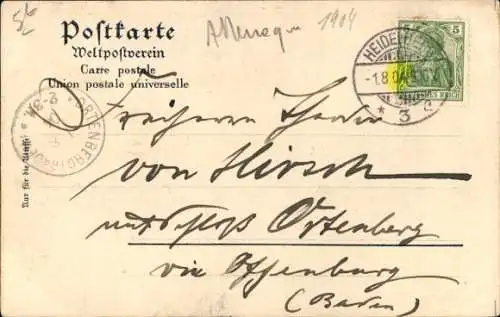 Postkarte
Weltpostverein
Carte postale
Union postale universelle
1904
5
HEIDELBE
-1.8.04
* 3 c
ORTENBERG
Nur für die Adresse
Freiherrn
von Hirsch
Schloss Ortenberg
via Offenburg
(Baden)